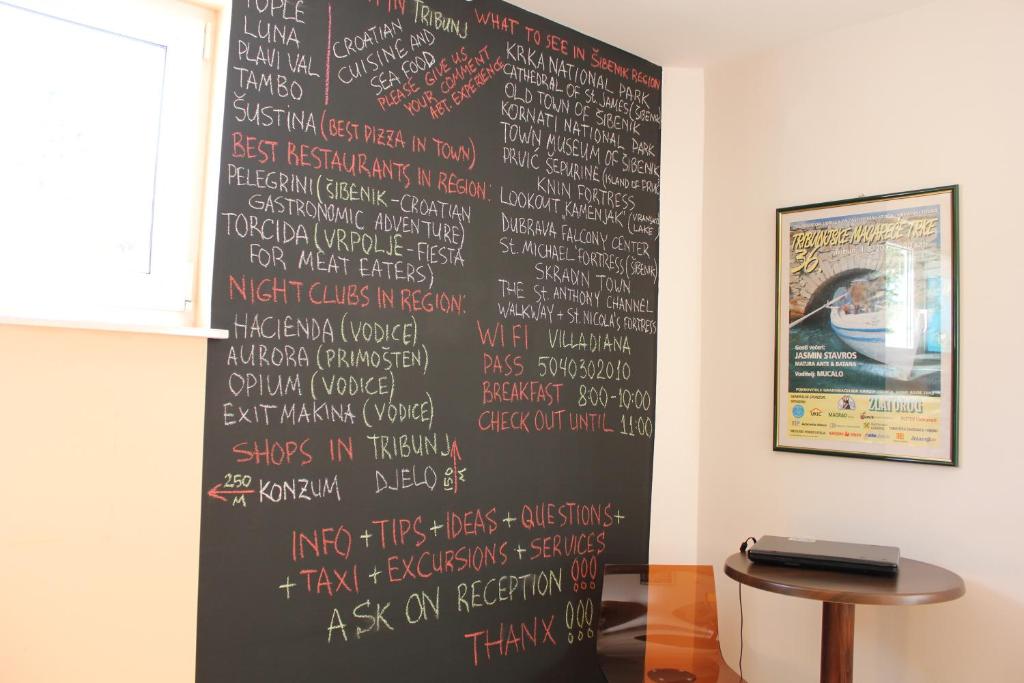 TOPLE
LUNA
PLAVI VAL
TAMBO
ŠUSTINA (BEST PIZZA IN TOWN)
IN TRIBUNJ
CROATIAN
CUISINE AND
SEA FOOD
PLEASE GIVE US
YOUR COMMENT
ABT. EXPERIENCE
BEST RESTAURANTS IN REGION:
PELEGRINI (ŠIBENIK-CROATIAN
GASTRONOMIC ADVENTURE)
TORCIDA (VRPOLJE-FIESTA
FOR MEAT EATERS)
NIGHT CLUBS IN REGION:
HACIENDA (VODICE)
AURORA (PRIMOŠTEN)
OPIUM (VODICE)
EXIT MAKINA (VODICE)
SHOPS IN TRIBUNJ
250 M KONZUM DJELO 150 M
WHAT TO SEE IN ŠIBENIK REGION
KRKA NATIONAL PARK
CATHEDRAL OF ST. JAMES (ŠIBENIK)
OLD TOWN OF ŠIBENIK
KORNATI NATIONAL PARK
TOWN MUSEUM OF ŠIBENIK
PRVIĆ ŠEPURINE (ISLAND OF PRVIĆ
KNIN FORTRESS
LOOKOUT „KAMENJAK" (VRANSKO LAKE)
DUBRAVA FALCONY CENTER
ST. MICHAEL FORTRESS (ŠIBENIK)
SKRADIN TOWN
THE ST. ANTHONY CHANNEL
WALKWAY + ST. NICOLA'S FORTRESS
WIFI VILLADIANA
PASS 5040302010
BREAKFAST 8:00-10:00
CHECK OUT UNTIL 11:00
INFO + TIPS + IDEAS + QUESTIONS +
+ TAXI + EXCURSIONS + SERVICES
ASK ON RECEPTION !!!
THANX !!!
TRIBUNJSKE MAGAREĆE TRKE
36.
Gosti večeri:
JASMIN STAVROS
MATURA ANTE & BATANA
Voditelj: MUCALO
ZLATOROG